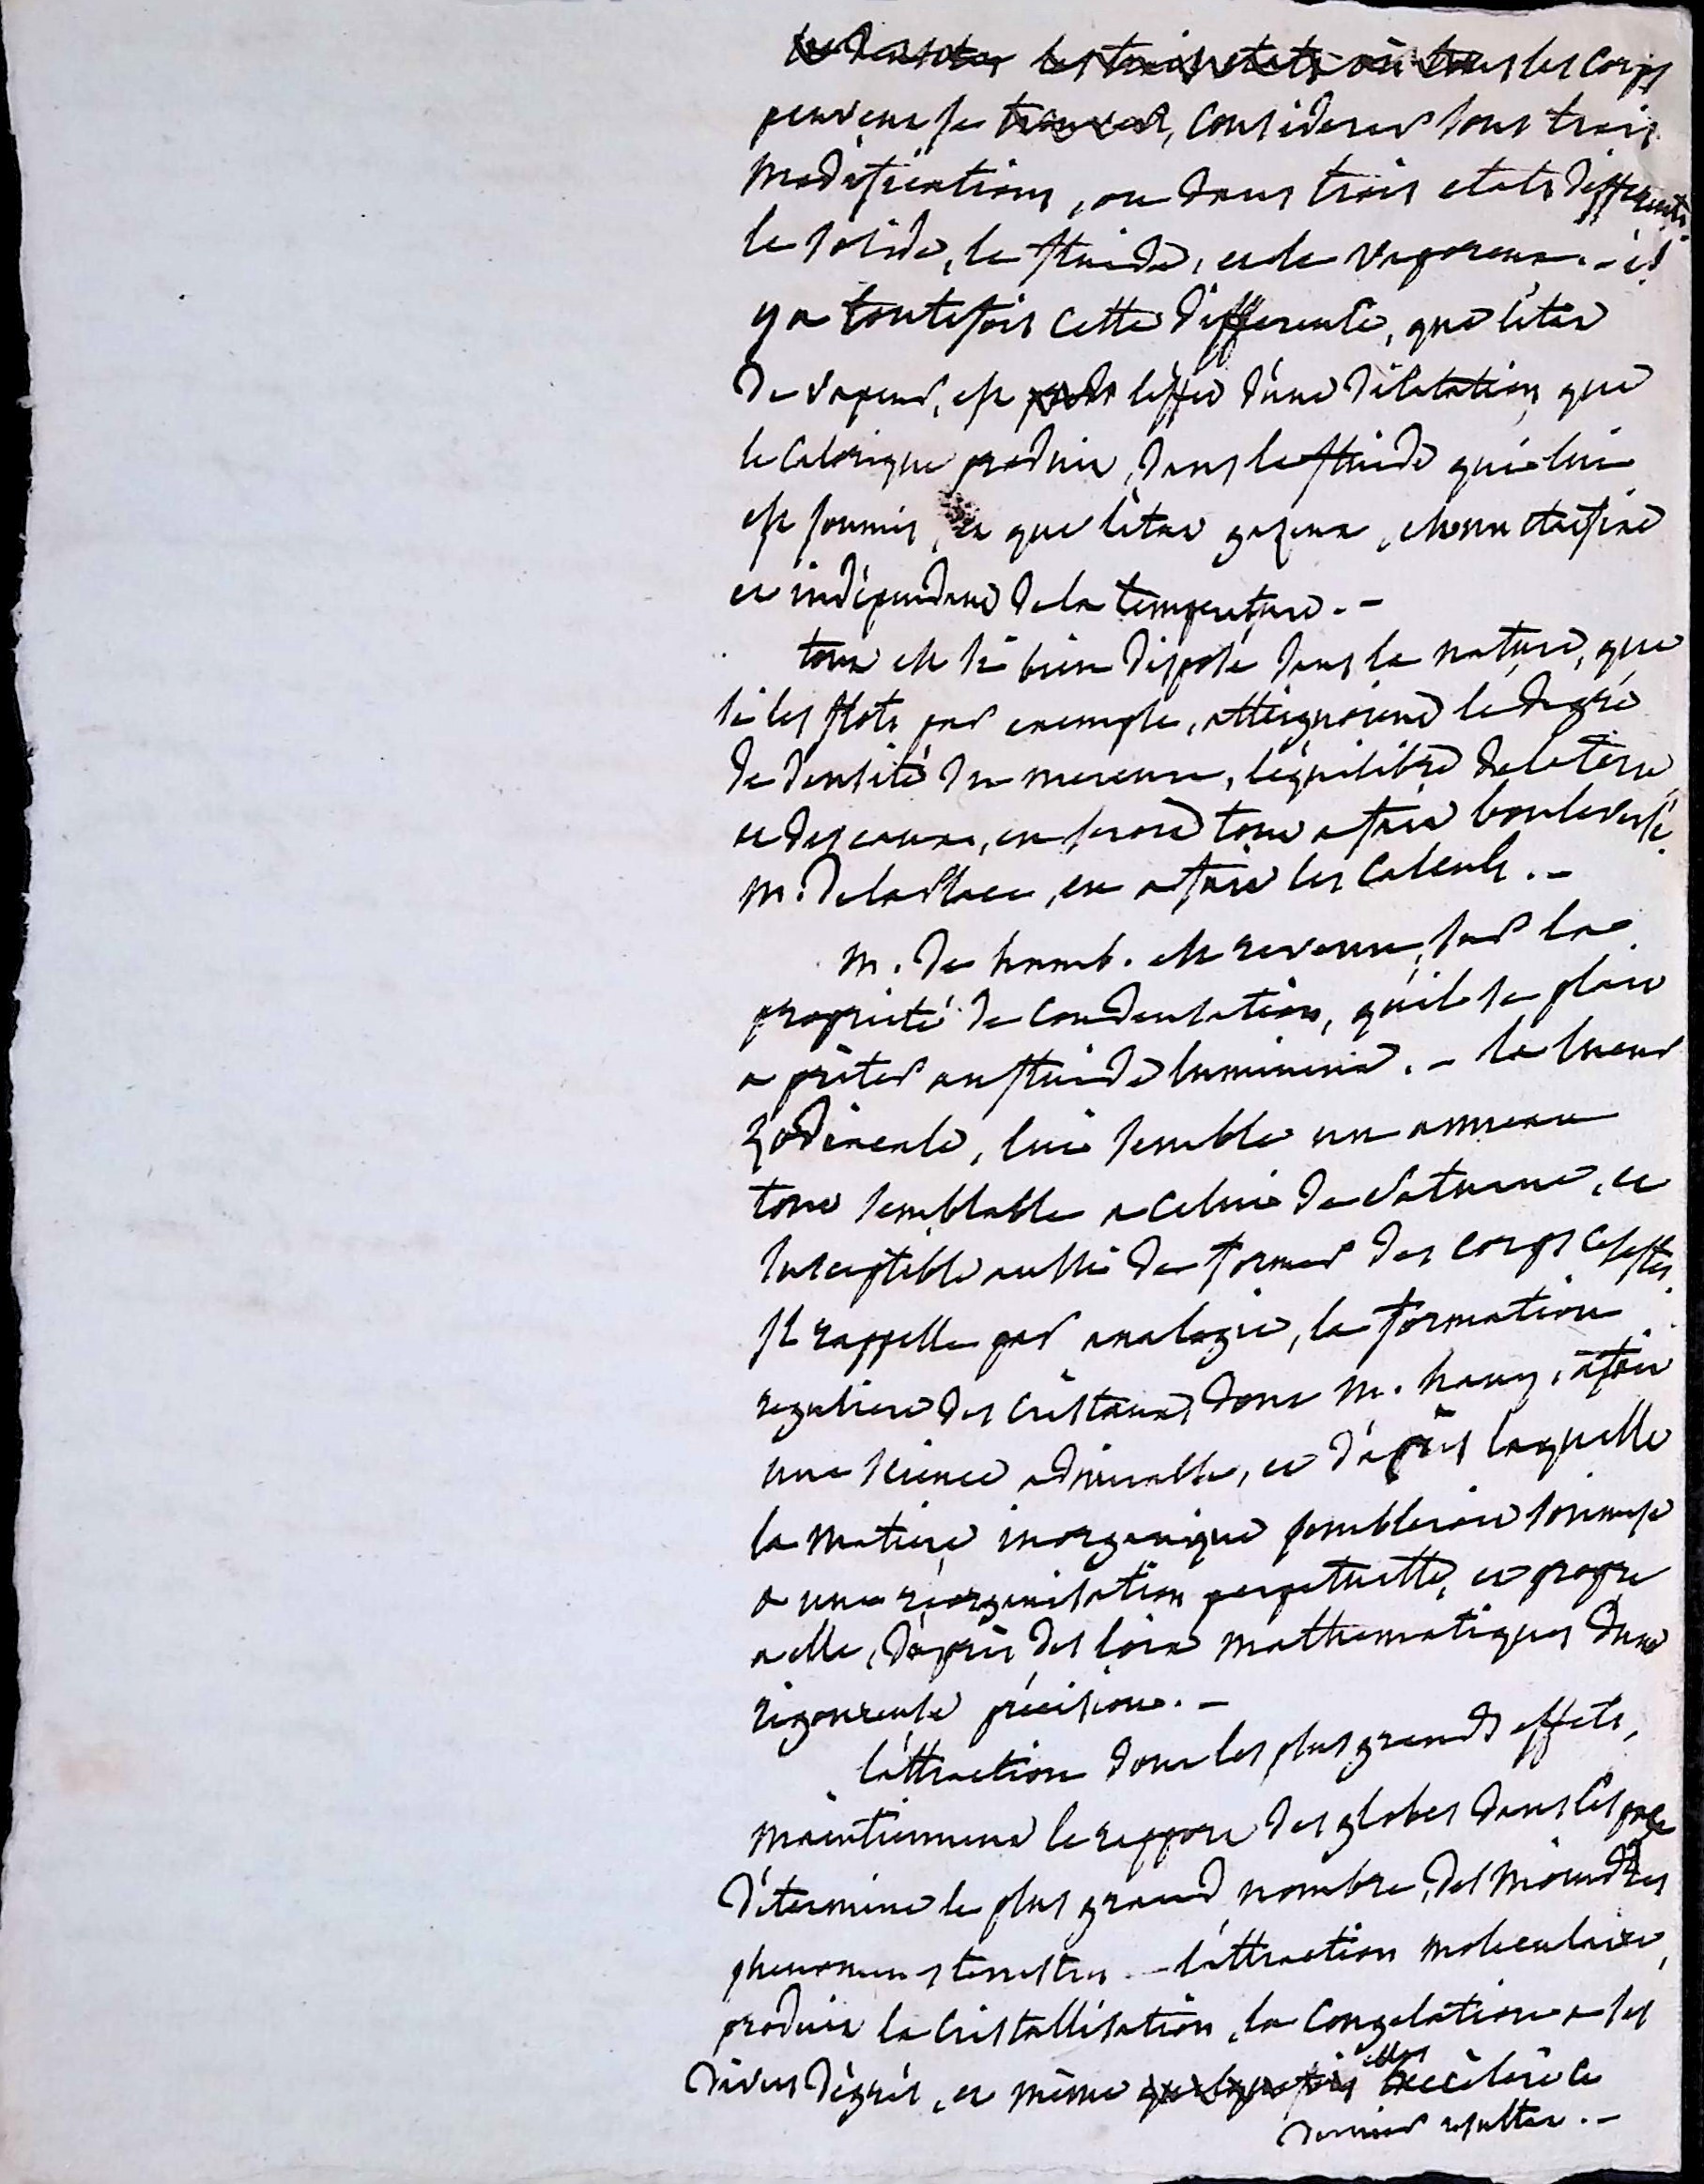 les trois etats où tous les corps
peuvent se trouver, considerer sous trois
modifications, ou dans trois etats differents.
le solide, le fluide, et le vaporeux. – il
y a toutefois cette difference, que l'état
de vapeur, est l'effet d'une dilatation, que
le calorique produit, dans le fluide qui lui
est soumis, et que l'état gazeux, est
et indépendant de la temperature. –
tout est si bien disposé dans la nature, que
si les flots par exemple, atteignoient le degré
de densité du mercure, l'équilibre de la terre,
et des eaux, en seroit tout a fait bouleversé.
M. de la Place, en a fait les calculs. –
M. de humb. est revenu, sur la
proprieté de condensation, qu'il se plait
a prêter au fluide lumineux. – la lueur
zodiacale, lui semble un anneau
tout semblable a celui de Saturne, et
susceptible aussi de former des corps celestes.
Il rappelle par analogie, la formation
reguliere des cristaux, dont M. hauy, a fait
une science admirable, et d'après laquelle
la matiere inorganique sembleroit soumise
a une réorganisation perpetuelle, et propre
a elle, d'après des loix mathematiques d'une
rigoureuse précision. –
l'attraction dont les plus grands effets,
maintiennent le rapport des globes dans l'espace
détermine le plus grand nombre, des moindres
phenomenes terrestres. – l'attraction moleculaire,
produit la cristallisation, la congelation a ses
divers dégrés, et même quelquefois elle accélère ce
dernier resultat. –